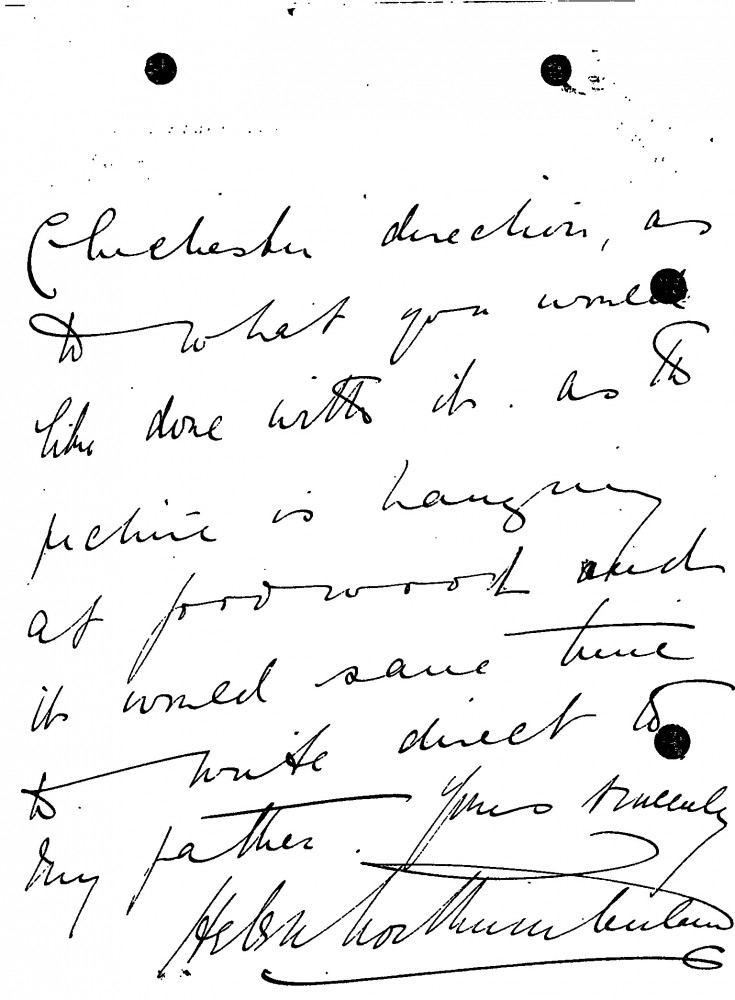 Chichester direction, as
to what you would
like done with it. as the
picture is hanging
at Goodwood and
it would save time
to write direct to
my father. Yours sincerely
Helen Northumberland